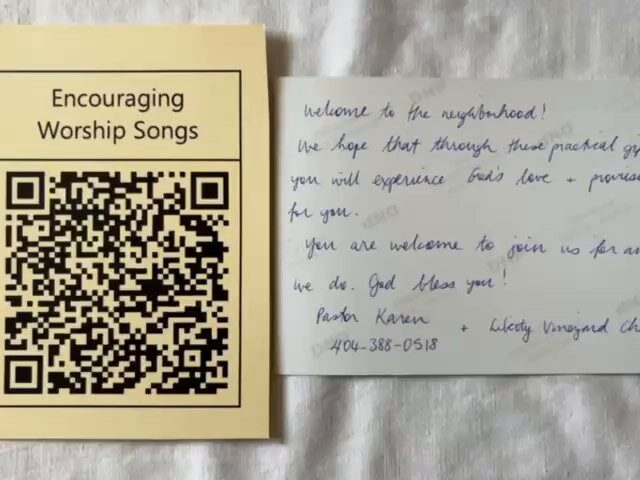 Encouraging
Worship Songs
Welcome to the neighborhood!
We hope that through these practical
you will experience God's love +
for you.
You are welcome to join us for
we do. God bless you!
Pastor Karen + Vineyard
404-388-0518